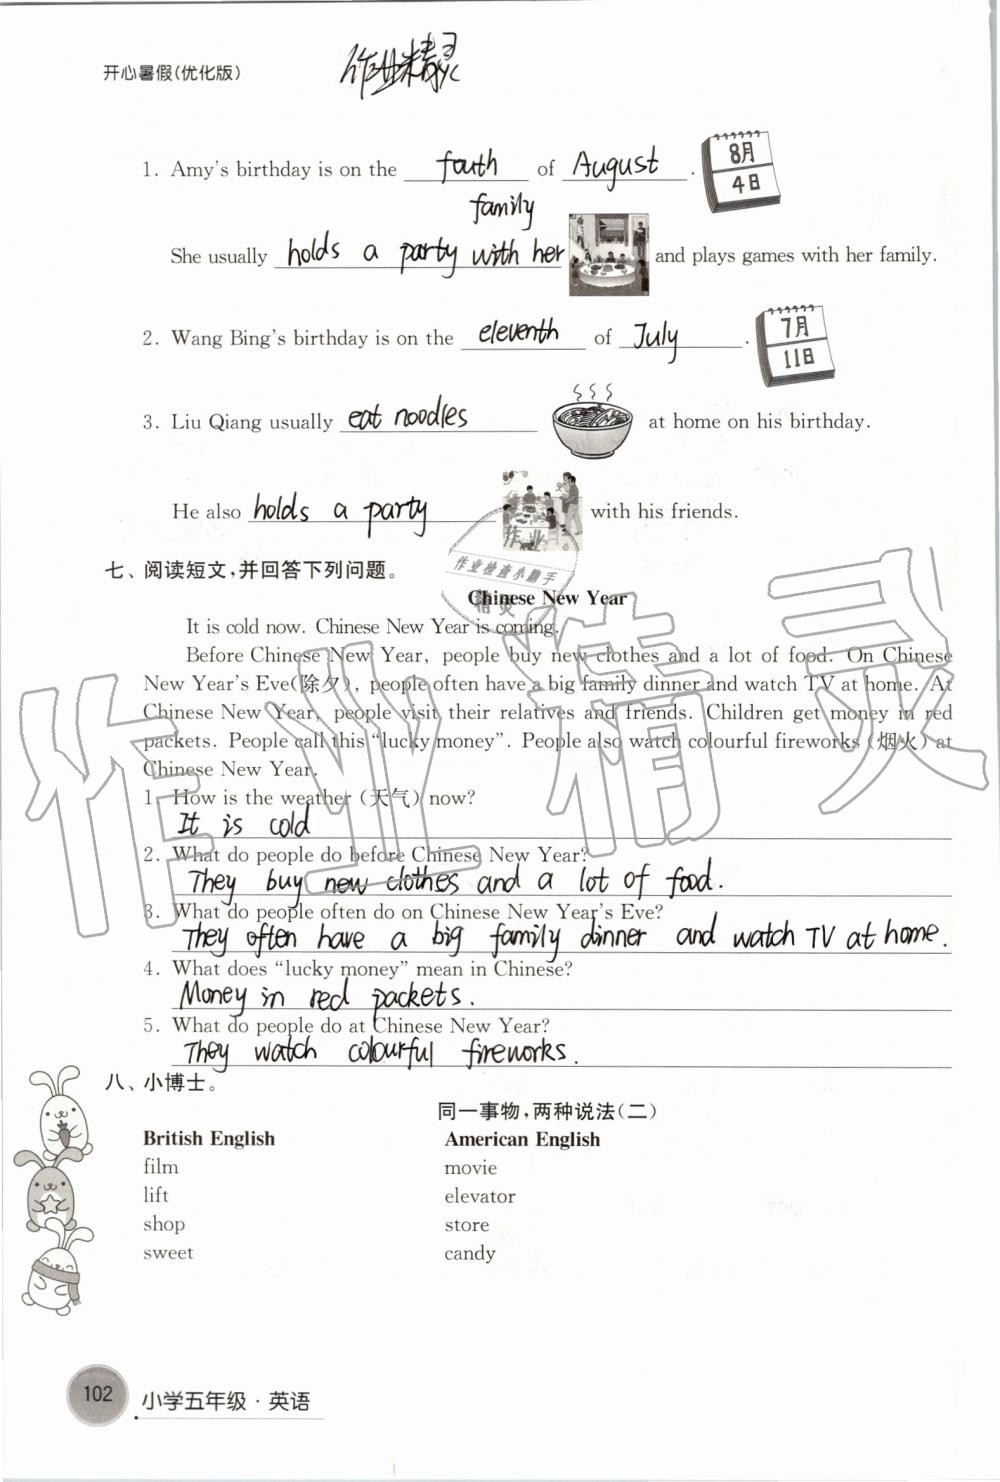 开心暑假(优化版)
作业精灵
1. Amy's birthday is on the fouth of August.
8月
4日
family
She usually holds a party with her and plays games with her family.
2. Wang Bing's birthday is on the eleventh of July.
7月
11日
3. Liu Qiang usually eat noodles at home on his birthday.
He also holds a party with his friends.
作业
作业检查小助手
精灵
七、阅读短文,并回答下列问题。
Chinese New Year
It is cold now. Chinese New Year is coming.
Before Chinese New Year, people buy new clothes and a lot of food. On Chinese
New Year's Eve(除夕), people often have a big family dinner and watch TV at home. At
Chinese New Year, people visit their relatives and friends. Children get money in red
packets. People call this "lucky money". People also watch colourful fireworks (烟火) at
Chinese New Year.
作业精灵
1. How is the weather (天气) now?
It is cold
2. What do people do before Chinese New Year?
They buy new clothes and a lot of food.
3. What do people often do on Chinese New Year's Eve?
They often have a big family dinner and watch TV at home.
4. What does "lucky money" mean in Chinese?
Money in red packets.
5. What do people do at Chinese New Year?
They watch colourful fireworks.
八、小博士。
同一事物,两种说法(二)
British English American English
film movie
lift elevator
shop store
sweet candy
102 小学五年级·英语